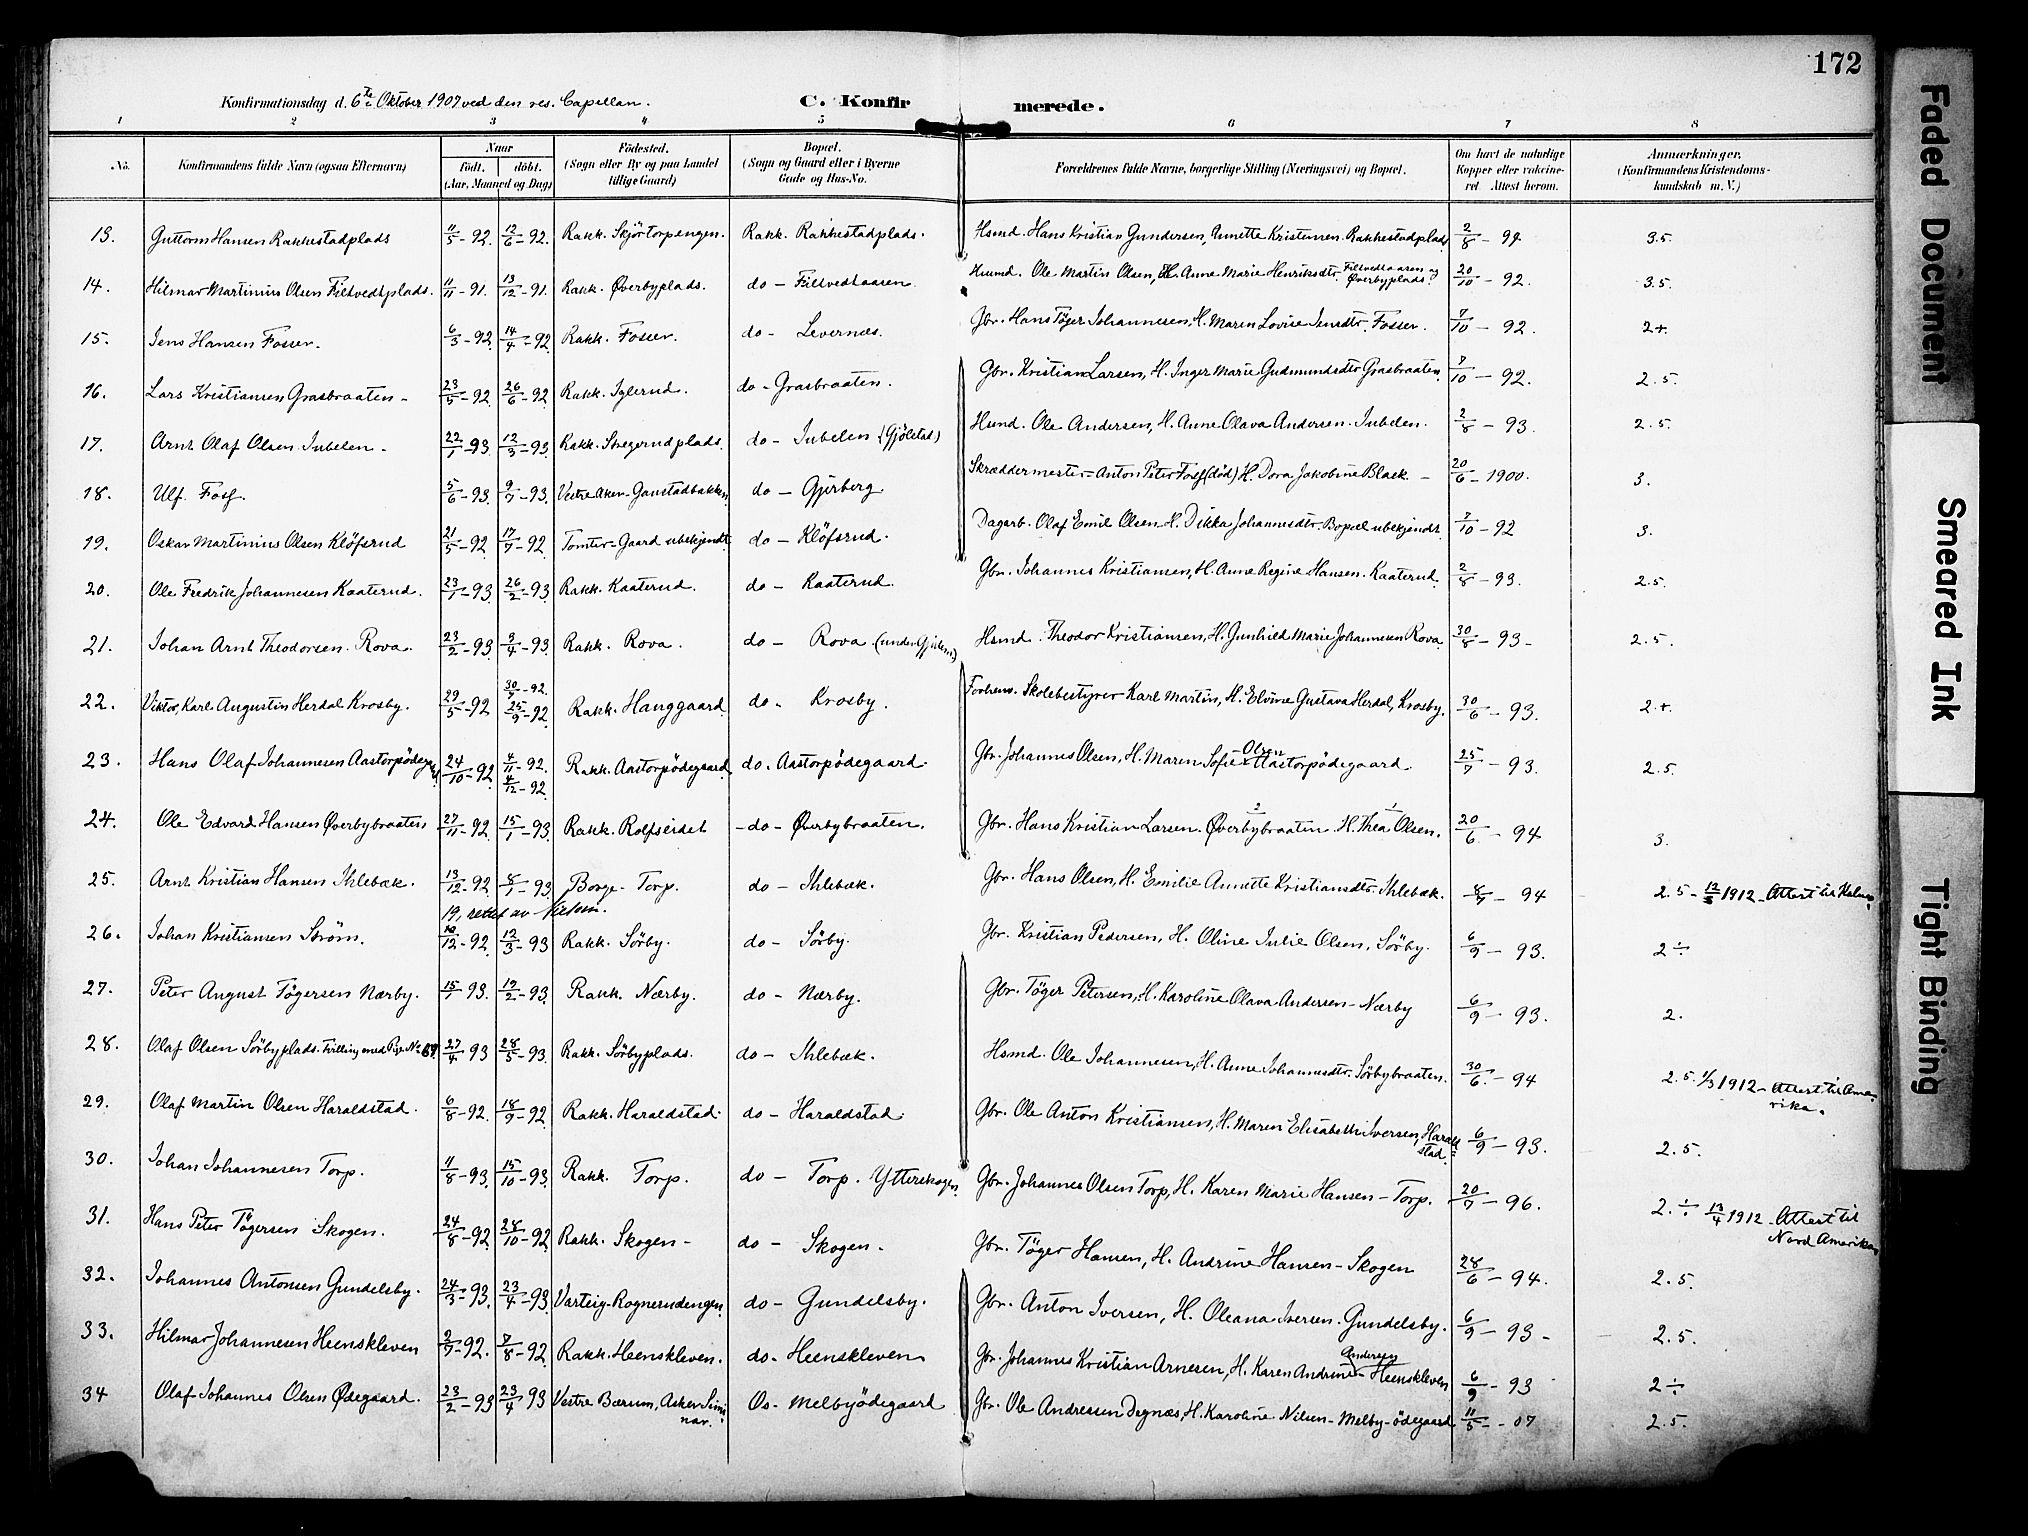 172
Konfirmationsdag d. 6te Oktober 1907 ved den res. Capellan.
C. Konfirmerede.
1 2 3 4 5 6 7 8
No. Konfirmandens fulde Navn (ogsaa Efternavn) Naar født. døbt. (Aar, Maaned og Dag) Fødested. (Sogn eller By og paa Landet tillige Gaard) Bopæl. (Sogn og Gaard eller i Byerne Gade og Hus-No. Forældrenes fulde Navne, borgerlige Stilling (Næringsvei) og Bopæl. Om havt de naturlige Kopper eller vakcineret. Attest herom. Anmærkninger. (Konfirmandens Kristendomskundskab m. V.)
13. Guttorm Hansen Rakkestadplads 11/5-92. 12/6-92. Rakk. Skjørtorpengen. Rakk. Rakkestadplads. Hsmd. Hans Kristian Gundersen, Annette Kristensen Rakkestadplads 2/8-94 3.5.
14. Hilmar Martinius Olsen Filtvedtplads. 11/11-91. 13/12-91. Rakk. Øverbyplads. do - Filtvedtaasen Husmd. Ole Martin Olsen, H. Anne Marie Henriksdtr. Filtvedtaasen og Øverbyplads. 20/10-92. 3.5.
15. Jens Hansen Fosser. 6/3-92. 14/4-92 Rakk. Fosser. do - Levernæs. Gbr. Hans Tøger Johannesen, H. Maren Lovise Jensdtr. Fosser. 7/10-92. 2+.
16. Lars Kristiansen Grasbraaten - 23/5-92. 26/6-92 Rakk. Iglerud. do - Grasbraaten. Gbr. Kristian Larsen, H. Inger Marie Gudmundsdtr Grasbraaten. 7/10-92. 2.5.
17. Arnt Olaf Olsen Jubelen - 22/1-93 12/3-93. Rakk. Stegerudplads. do - Jubelen (Gjølstad) Husmd. Ole Andersen, H. Anne Olava Andersen. Jubelen. 2/8-93. 2.5.
18. Ulf. Foss. 5/6-93. 9/7-93. Vestre Aker-Gaustadbakken do - Gjerberg. Skræddermester-Anton Peter Foss (død) H. Dora Jakobine Black. - 20/6-1900. 3.
19. Oskar Martinius Olsen Kløfsrud 21/5-92. 17/7-92. Tomter-Gaard ubekjendt. do - Kløfsrud. Dagarb. Olaf Emil Olsen H. Dikka Johannesdtr. Bopæl ubekjendt. 7/10-92 3.
20. Ole Fredrik Johannesen Kaaterud. 23/1-93. 26/2-93. Rakk. Kaaterud. do - Kaaterud. Gbr. Johannes Kristiansen, H. Anne Regine Hansen. Kaaterud. 2/8-93. 2.5.
21. Johan Arnt Theodorsen. Rova. 23/2-93. 3/4-93. Rakk. Rova. do - Rova Hsmd. Theodor Kristiansen, H. Gunhild Marie Johannesen Rova. 30/8-93- 2.5.
22. Viktor, Karl Augustin Herdal Krosby. 29/5-92 30/7-92. 25/9-92 Rakk. Hanggaard. do. Krosby. Forhenv. Skolebestyrer Karl Martin, H. Elvine Gustava Herdal, Krosby. 30/6-93. 2.+.
23. Hans Olaf Johannesen Aastorpødegaard 24/10-92. 4/11-92. 4/12-92. Rakk. Aastorpødegaard. do. Aastorpødegaard. Gbr. Johannes Olsen, H. Maren Sofie Olsen Aastorpødegaard. 25/7-93. 2.5.
24. Ole Edvard Hansen Øverbybraaten 27/11-92. 15/1-93. Rakk. Rolfseidet -do- Øverbybraaten. Gbr. Hans Kristian Larsen. Øverbybraaten. H. Thea Olsen. 20/6-94 3.
25. Arnt Kristian Hansen Ihlebæk. 13/12-92 8/1-93. Borge- Torp. do - Ihlebæk. Gbr. Hans Olsen, H. Emilie Annette Kristiansdtr. Ihlebæk. 8/7-94 2.5 - 1912 - Attest til
26. Johan Kristiansen Strøm. 12-92 12/3-93 Rakk. Sørby. do - Sørby. Gbr. Kristian Pedersen, H. Oline Julie Olsen, Sørby. 6/9-93. 2÷
27. Peter August Tøgersen Nærby. 15/1 93. 19/2-93. Rakk. Nærby. do - Nærby. Gbr. Tøger Petersen, H. Karoline Olava Andersen - Nærby 6/9-93. 2.
28. Olaf Olsen Sørbyplads. Tvilling med Pige No 27/4 93 28/5-93. Rakk. Sørbyplads. do - Ihlebæk. Hsmd. Ole Johannesen, H. Anne Johannesdtr. Sørbybraaten. 30/6-94 2.5. 1/3 1912 - Attest til Amerika.
29. Olaf Martin Olsen Haraldstad. 6/8-92. 18/9-92. Rakk. Haraldstad. do - Haraldstad. Gbr. Ole Anton Kristiansen, H. Maren Elisabeth Iversen, Haraldstad. 6/9-93. 2.5.
30. Johan Johannesen Torp. 11/8-93. 15/10-93. Rakk. Torp. do - Torp. Ytterskogen. Gbr. Johannes Olsen Torp, H. Karen Marie Hansen - Torp. 20/7-96. 2.÷ 13/4 1912 - Attest til Nord Amerika
31. Hans Peter Tøgersen Skogen. 24/8-92. 28/10-92. Rakk. Skogen - do - Skogen. Gbr. Tøger Hansen, H. Andrine Hansen - Skogen 28/6-94. 2.5.
32. Johannes Antonsen Gundelsby. 24/3-93. 23/4-93. Varteig-Rognerudengen. do - Gundelsby. Gbr. Anton Iversen, H. Oleana Iversen. Gundelsby. 6/9-93- 2.5.
33. Hilmar Johannesen Heenskleven 2/7-92. 7/8-92 Rakk. Heenskleven. do- Heenskleven Gbr. Johannes Kristian Arnesen, H. Karen Andrine Andersen Heenskleven 6/9-93 2÷
34 Olaf Johannes Olsen Ødegaard. 23/2-93 23/4 93 Vestre Bærum, Asker Seminar. Os- Melbyødegaard Gbr. Ole Andreasen Degnæs, H. Karoline Nilsen - Melby-ødegaard 11/5-07 2.5.
Faded Document
Smeared Ink
Tight Binding